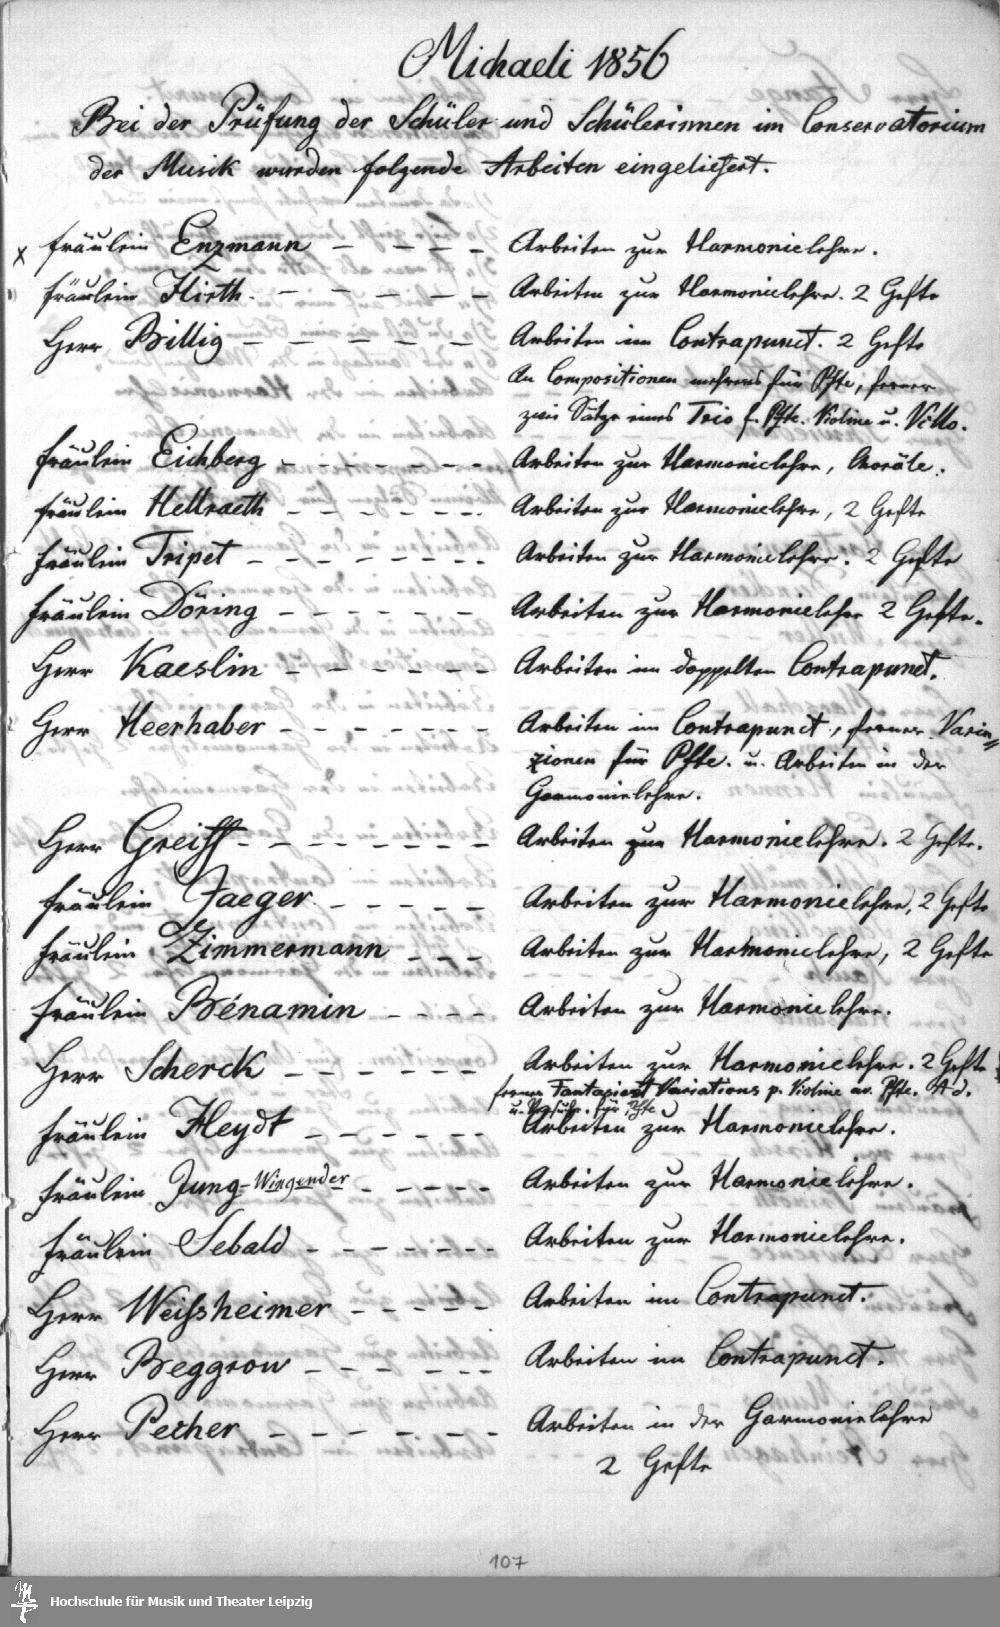 Michaeli 1856
Bei der Prüfung der Schüler und Schülerinnen im Conservatorium
der Musik wurden folgende Arbeiten eingeliefert.
x Fräulein Enzmann – – – – Arbeiten zur Harmonielehre.
Fräulein Hirth. – – – – – Arbeiten zur Harmonielehre. 2 Hefte
Herr Billig – – – – – – Arbeiten im Contrapunct. 2 Hefte
An Compositionen mehrere für Pfte, ferner
zwei Sätze eines Trio f. Pfte. Violine u. Vcllo.
Fräulein Eichberg – – – – – – Arbeiten zur Harmonielehre, Choräle.
Fräulein Hellraeth – – – – – – Arbeiten zur Harmonielehre, 2 Hefte
Fräulein Tripet – – – – – – – Arbeiten zur Harmonielehre. 2 Hefte
Fräulein Döring – – – – – – Arbeiten zur Harmonielehre 2 Hefte.
Herr Kaeslin – – – – – – Arbeiten im doppelten Contrapunct.
Herr Heerhaber – – – – – – Arbeiten im Contrapunct, ferner Varia=
zionen für Pfte. u. Arbeiten in der
Harmonielehre.
Herr Greiff – – – – – – – – Arbeiten zur Harmonielehre. 2 Hefte.
Fräulein Jaeger – – – – – Arbeiten zur Harmonielehre, 2 Hefte
Fräulein Zimmermann – – – Arbeiten zur Harmonielehre, 2 Hefte
Fräulein Bénamin – – – – Arbeiten zur Harmonielehre.
Herr Scherck – – – – – Arbeiten zur Harmonielehre. 2 Hefte
ferner Fantasie et Variations p. Violine av. Pfte. Ad.
u. für Pfte
Fräulein Heydt – – – – – Arbeiten zur Harmonielehre.
Fräulein Jung-Wingender – – – – – Arbeiten zur Harmonielehre.
Fräulein Sebald – – – – – – – Arbeiten zur Harmonielehre.
Herr Weissheimer – – – – – Arbeiten im Contrapunct.
Herr Beggrow – – – – – – Arbeiten im Contrapunct.
Herr Pecher – – – – – – Arbeiten in der Harmonielehre
2 Hefte
107
Hochschule für Musik und Theater Leipzig